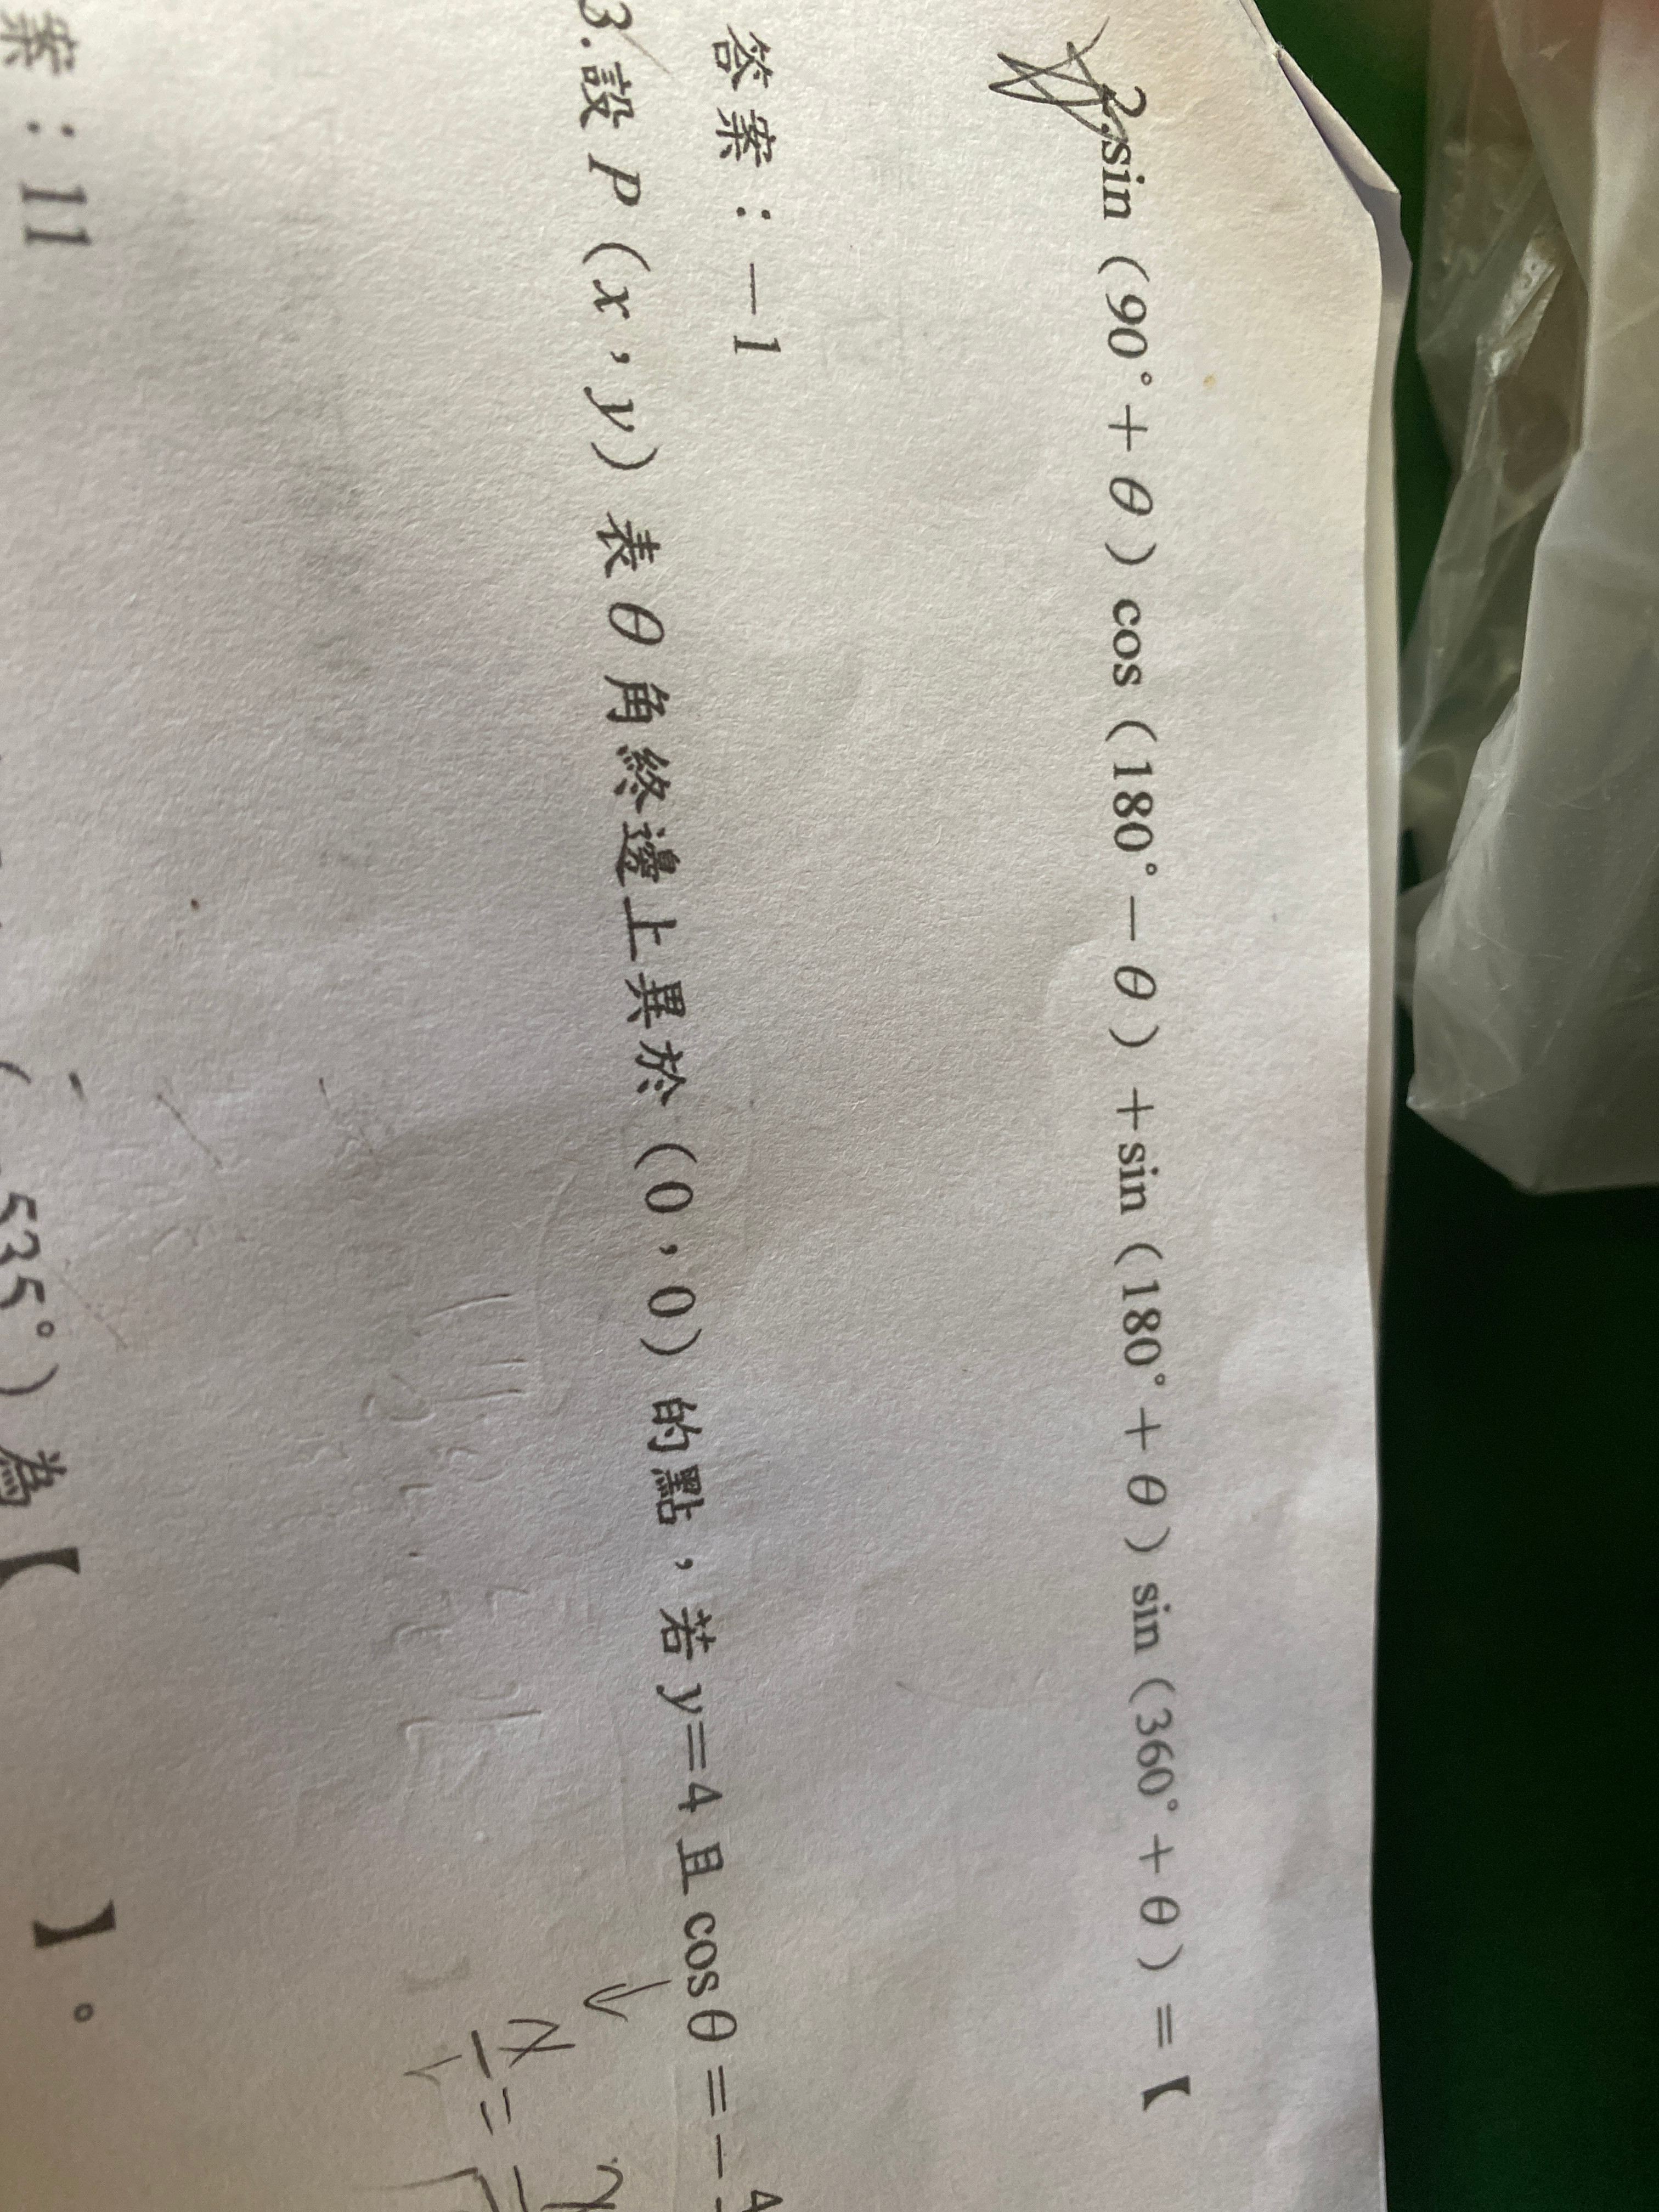 2.sin（90°＋θ）cos（180°－θ）+sin（180°＋θ）sin（360°＋θ）＝【
答案：－1
3.設 P（x，y）表 θ 角終邊上異於（0，0）的點，若 y=4 且 cosθ＝－
案：11
535°）為【 】。